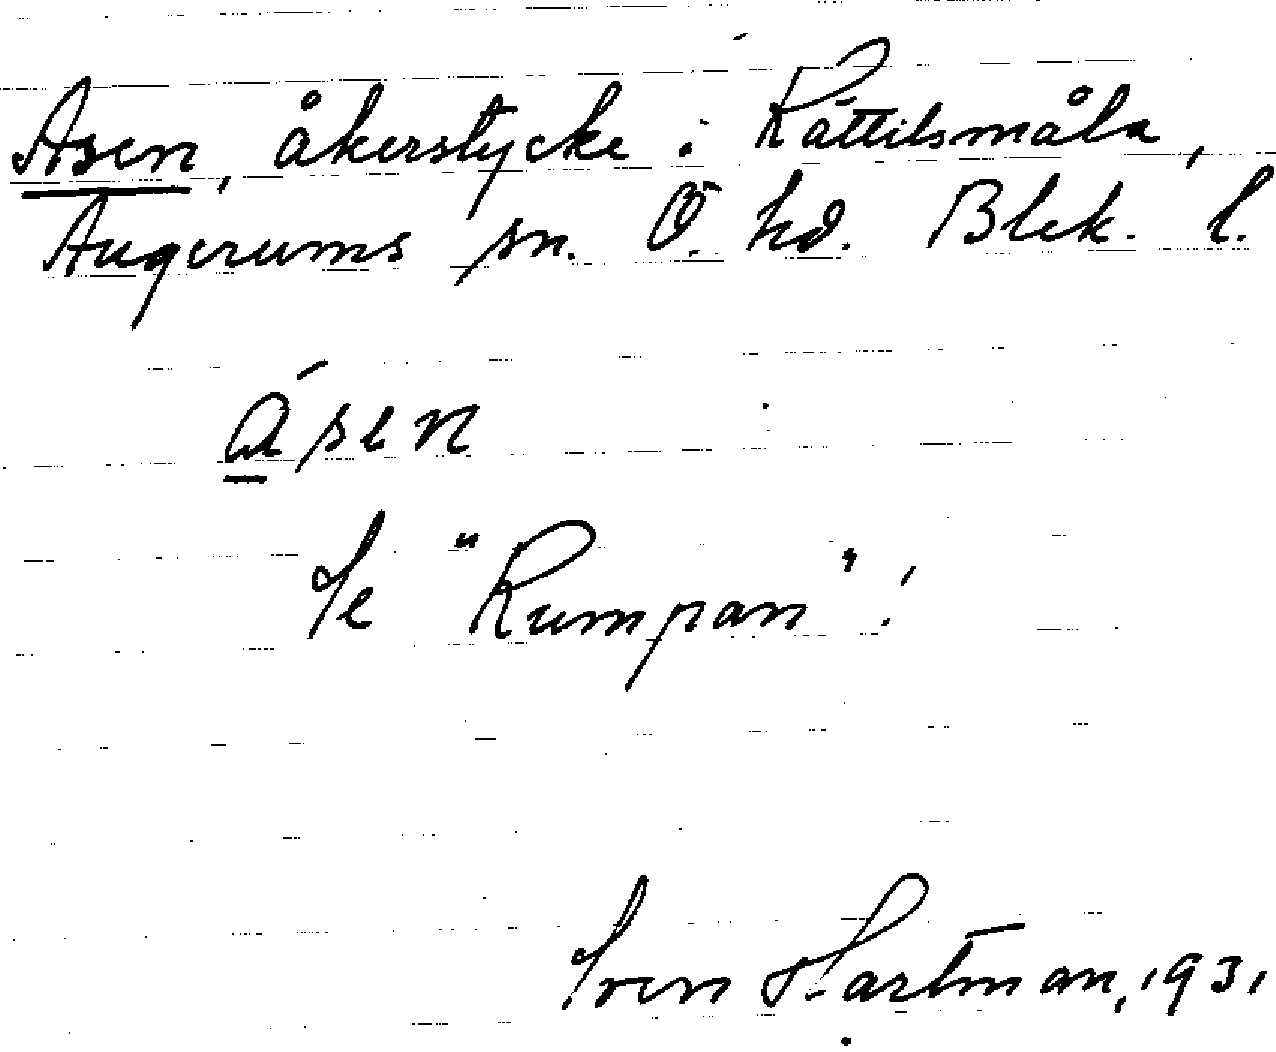 Åsen, åkerstycke i Rättilsmåla,
Augerums sn. Ö. hd. Blek. l.
åsen
Se "Rumpan"!
Sven Hartman, 1931